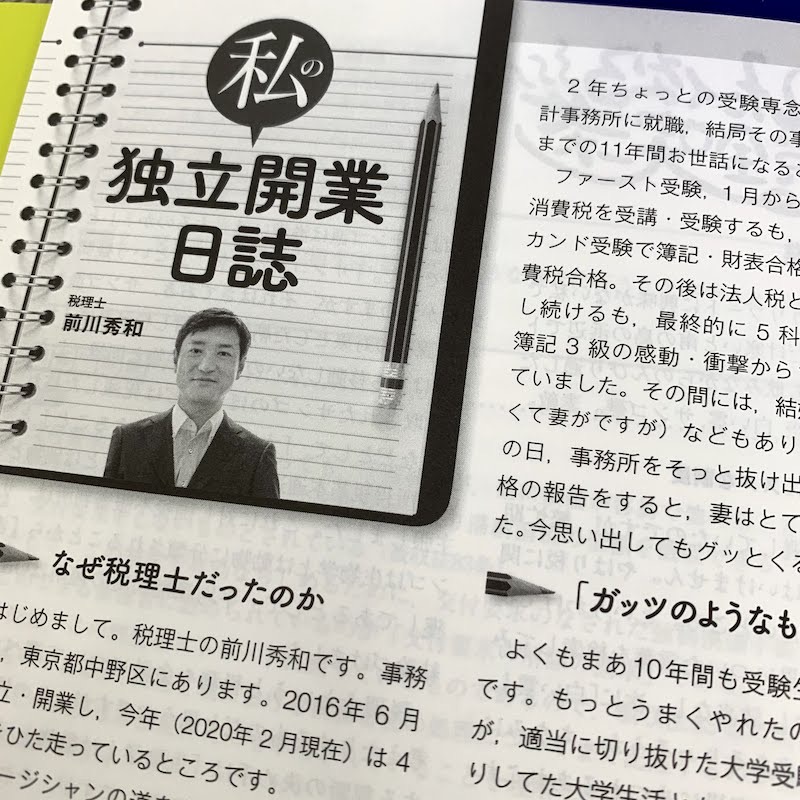 私の
独立開業
日誌
税理士
前川秀和
なぜ税理士だったのか
はじめまして。税理士の前川秀和です。事務
，東京都中野区にあります。2016年６月
立・開業し，今年（2020年２月現在）は４
ひた走っているところです。
ージシャンの道を
２年ちょっとの受験専念
計事務所に就職，結局その事
までの11年間お世話になると
ファースト受験，１月から
消費税を受講・受験するも，
カンド受験で簿記・財表合格
費税合格。その後は法人税と
し続けるも，最終的に５科
簿記３級の感動・衝撃から
ていました。その間には，結
くて妻がですが）などもあり
の日，事務所をそっと抜け出
格の報告をすると，妻はとて
た。今思い出してもグッとくる
「ガッツのようなも
よくもまあ10年間も受験生
です。もっとうまくやれたの
が，適当に切り抜けた大学受験
りしてた大学生活